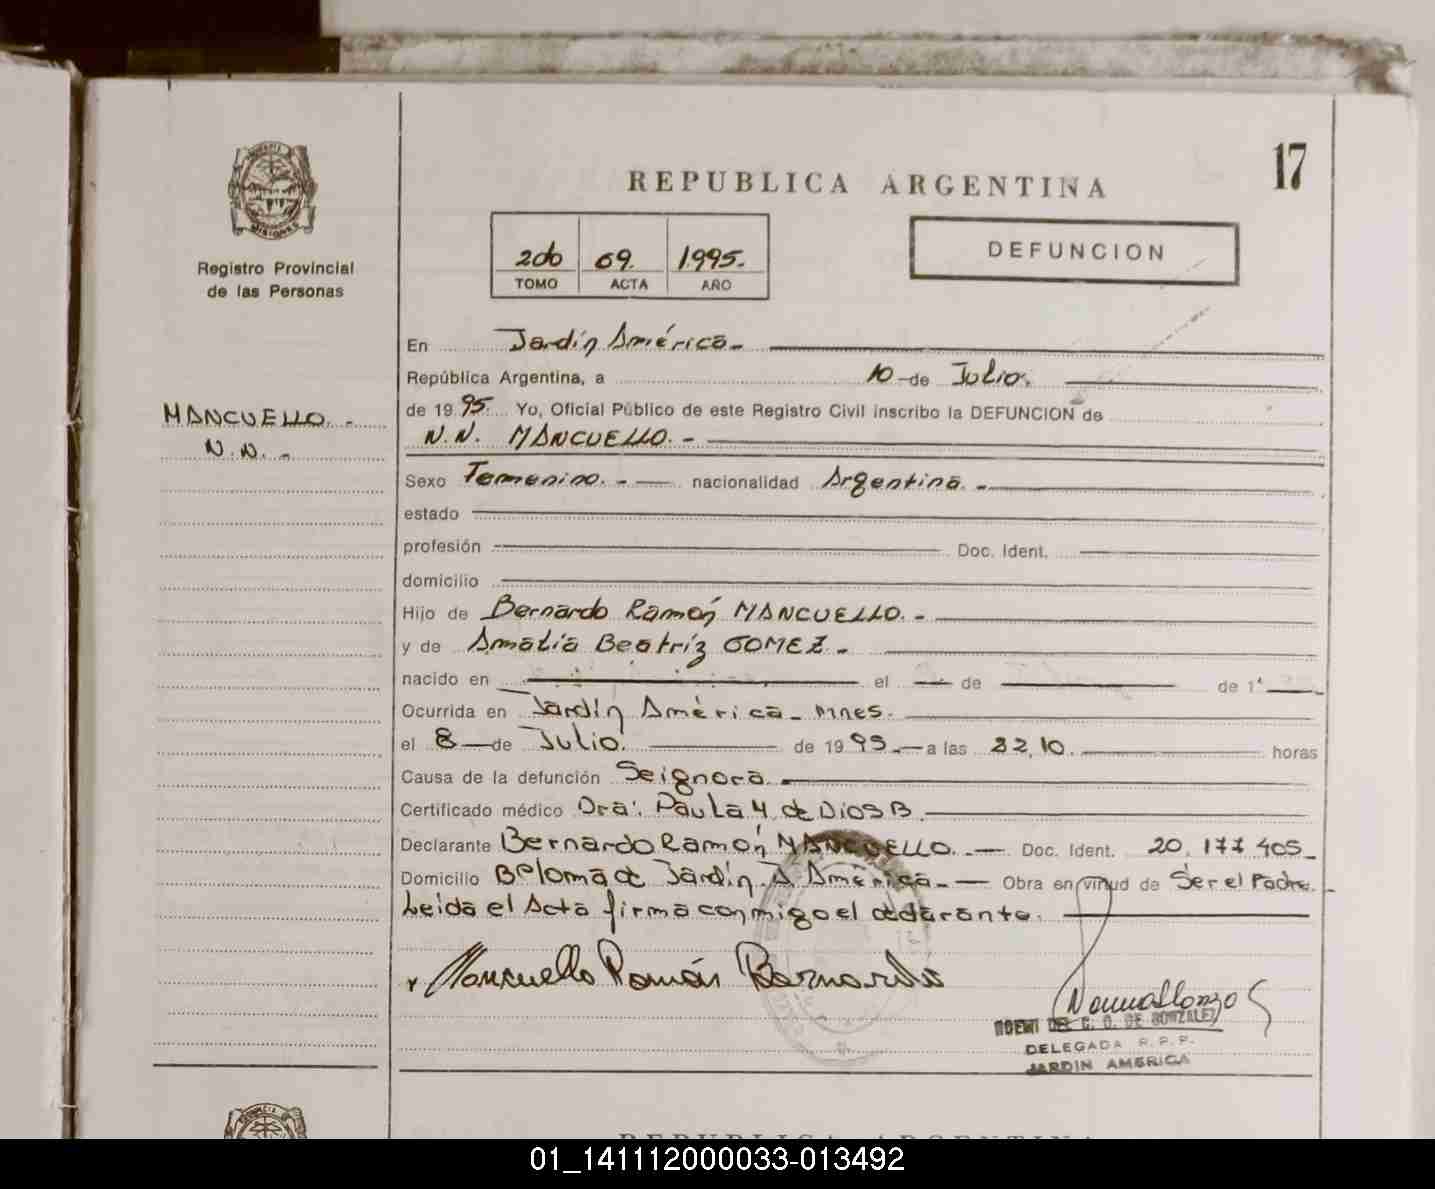 17
REPUBLICA ARGENTINA
PROVINCIA DE MISIONES
Registro Provincial
de las Personas
2do 69. 1.995.-
TOMO ACTA AÑO
DEFUNCION
En Jardín América.-
República Argentina, a 10 - de Julio.
MANCUELLO.-
N.N.-
de 19 95. Yo, Oficial Público de este Registro Civil inscribo la DEFUNCION de
N.N. MANCUELLO.-
Sexo Femenino.- nacionalidad Argentina.-
estado
profesión Doc. Ident.
domicilio
Hijo de Bernardo Ramón MANCUELLO.-
y de Amalia Beatríz GOMEZ.-
nacido en el de de 1
Ocurrida en Jardín América - Mnes.
el 8 - de Julio. de 19 95.- a las 22,10. horas
Causa de la defunción Se ignora.
Certificado médico Dra. Paula M. de Dios B.
Declarante Bernardo Ramón MANCUELLO.- Doc. Ident. 20.177.405_
Domicilio Jardín América.- Obra en virtud de Ser el Padre.
Leída el Acta firma conmigo el declarante.
Mancuello Ramón Bernardo
NOEMI DEL C. O. DE GONZALEZ
DELEGADA R.P.P.
JARDIN AMERICA
REPUBLICA ARGENTINA
01_141112000033-013492